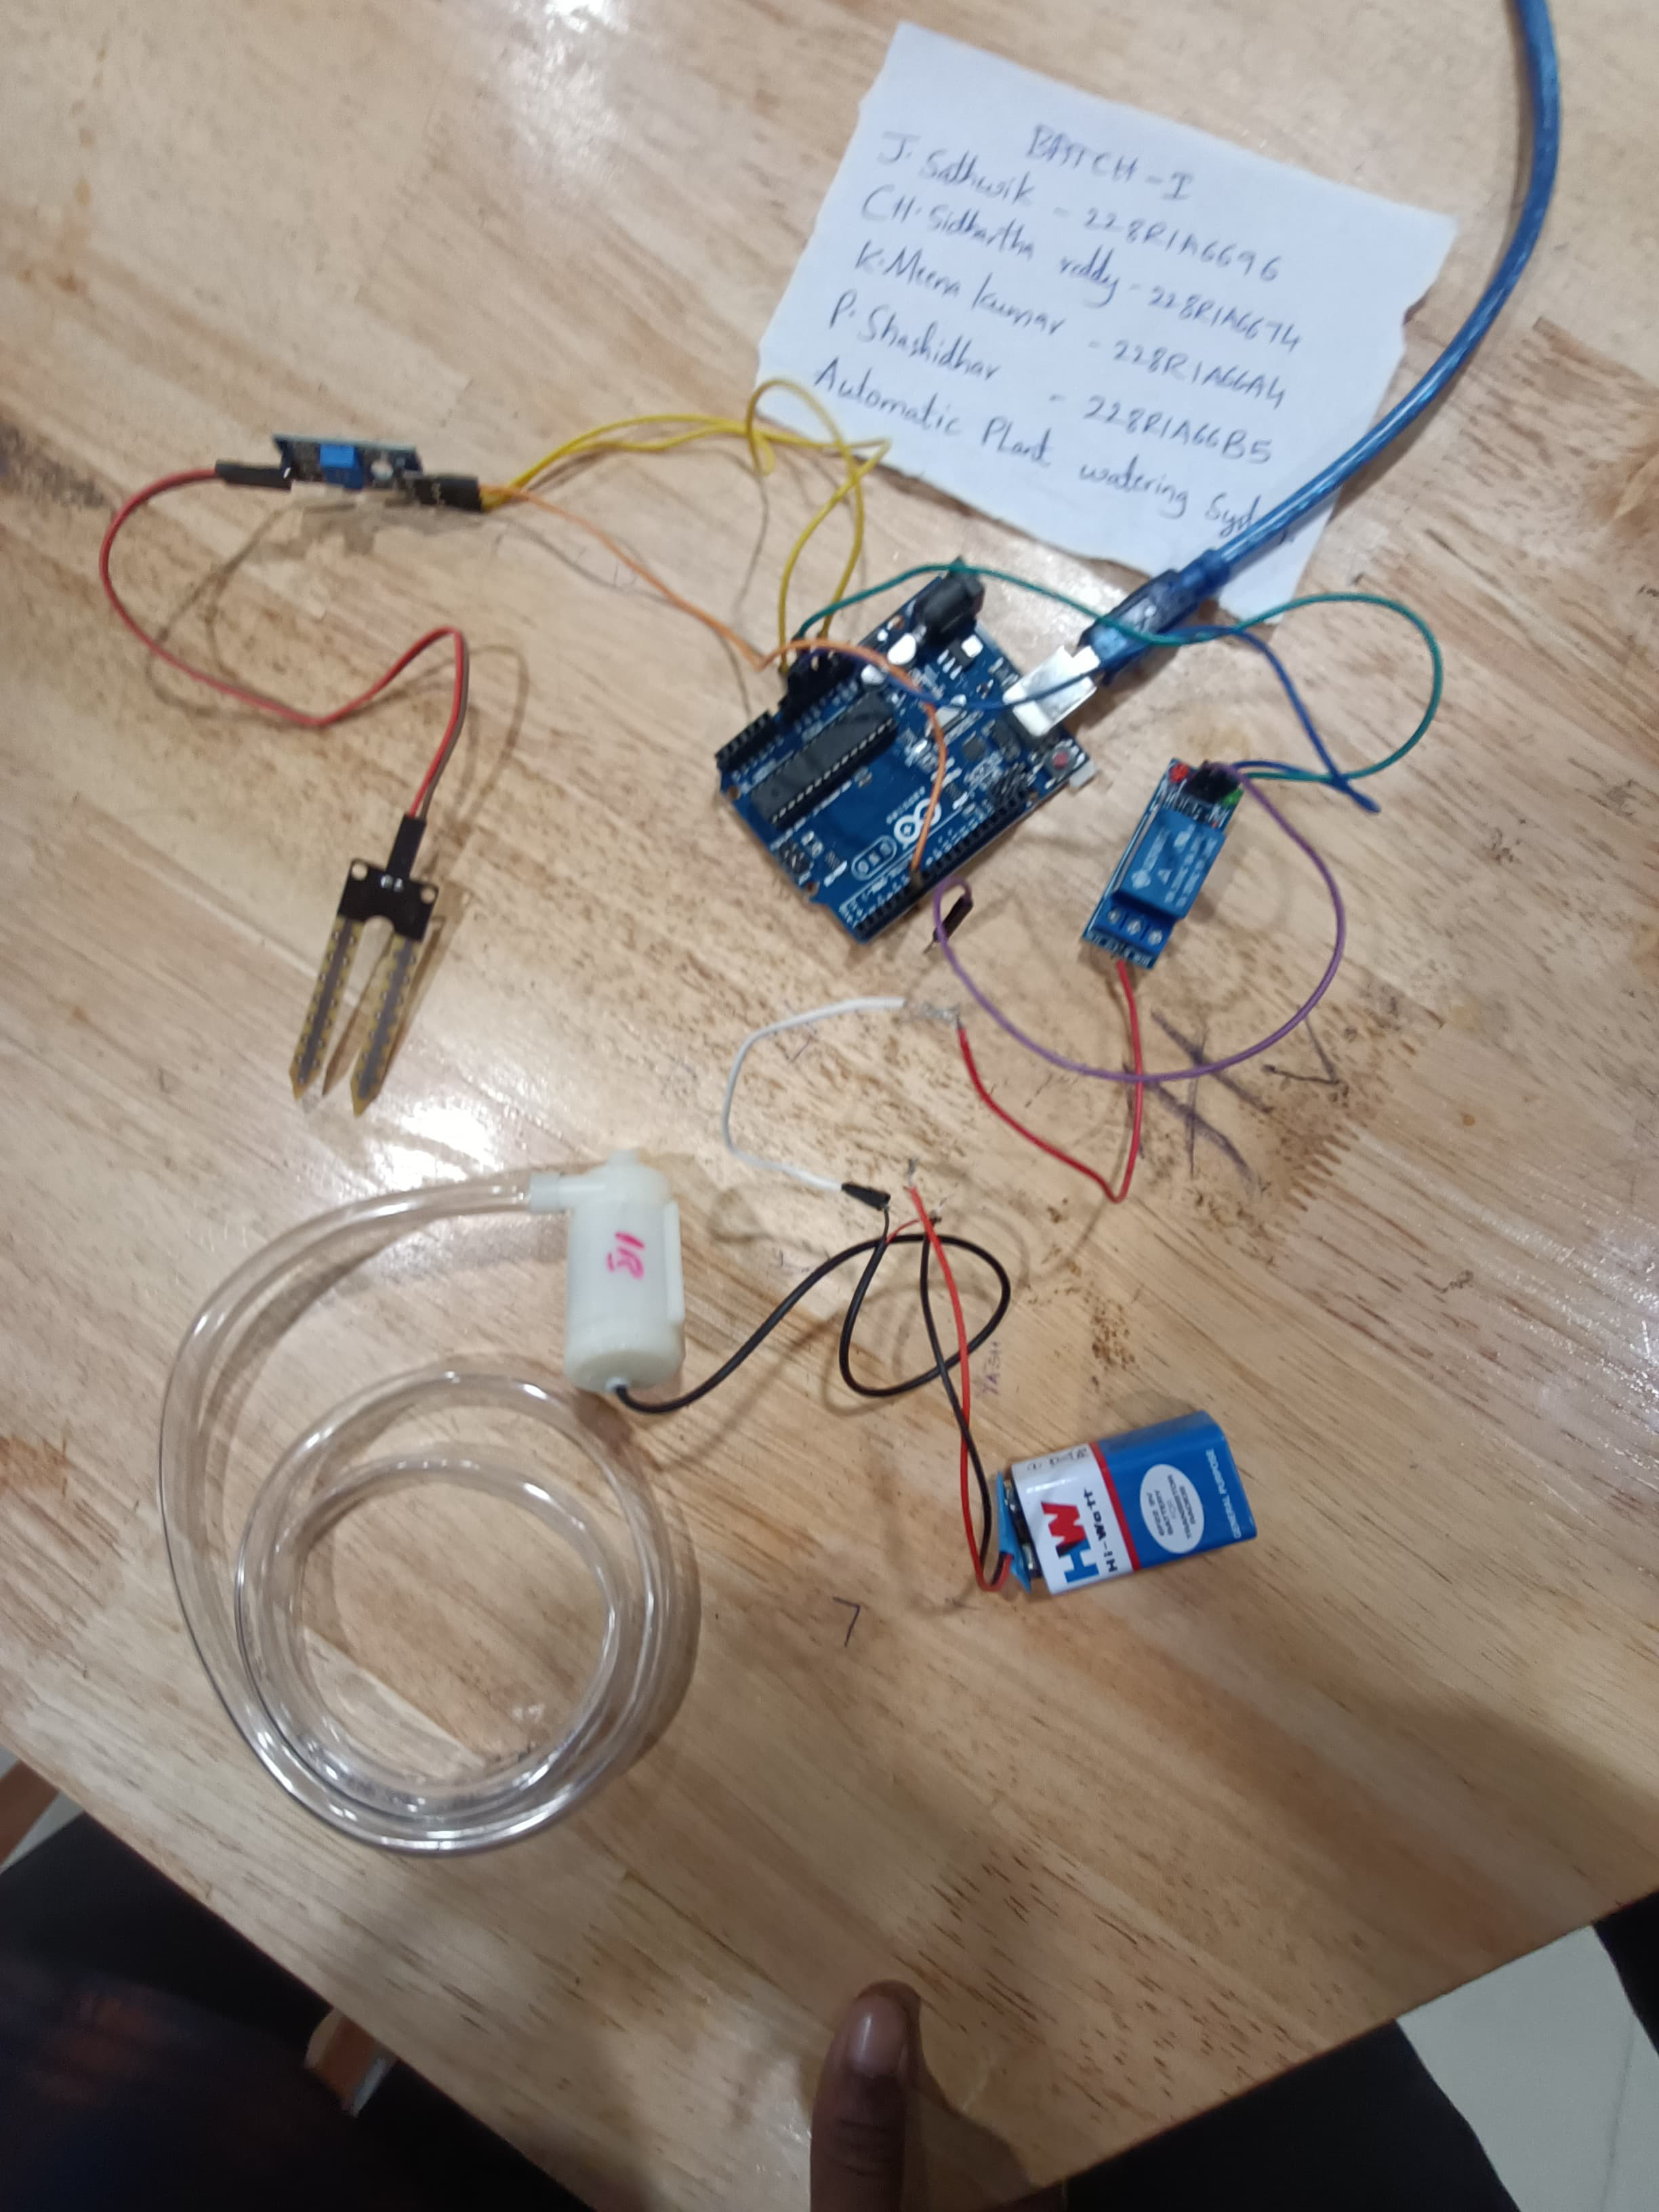 BATCH-I
J. Sathwik - 228R1A6696
CH. Sidhartha reddy - 228R1A6674
K. Meena kumar - 228R1A66A4
P. Shashidhar - 228R1A66B5
Automatic Plant watering Syst
HW
Hi-Watt
9V
BATTERY
TRANSISTOR
RADIOS
GENERAL PURPOSE
YASH
7